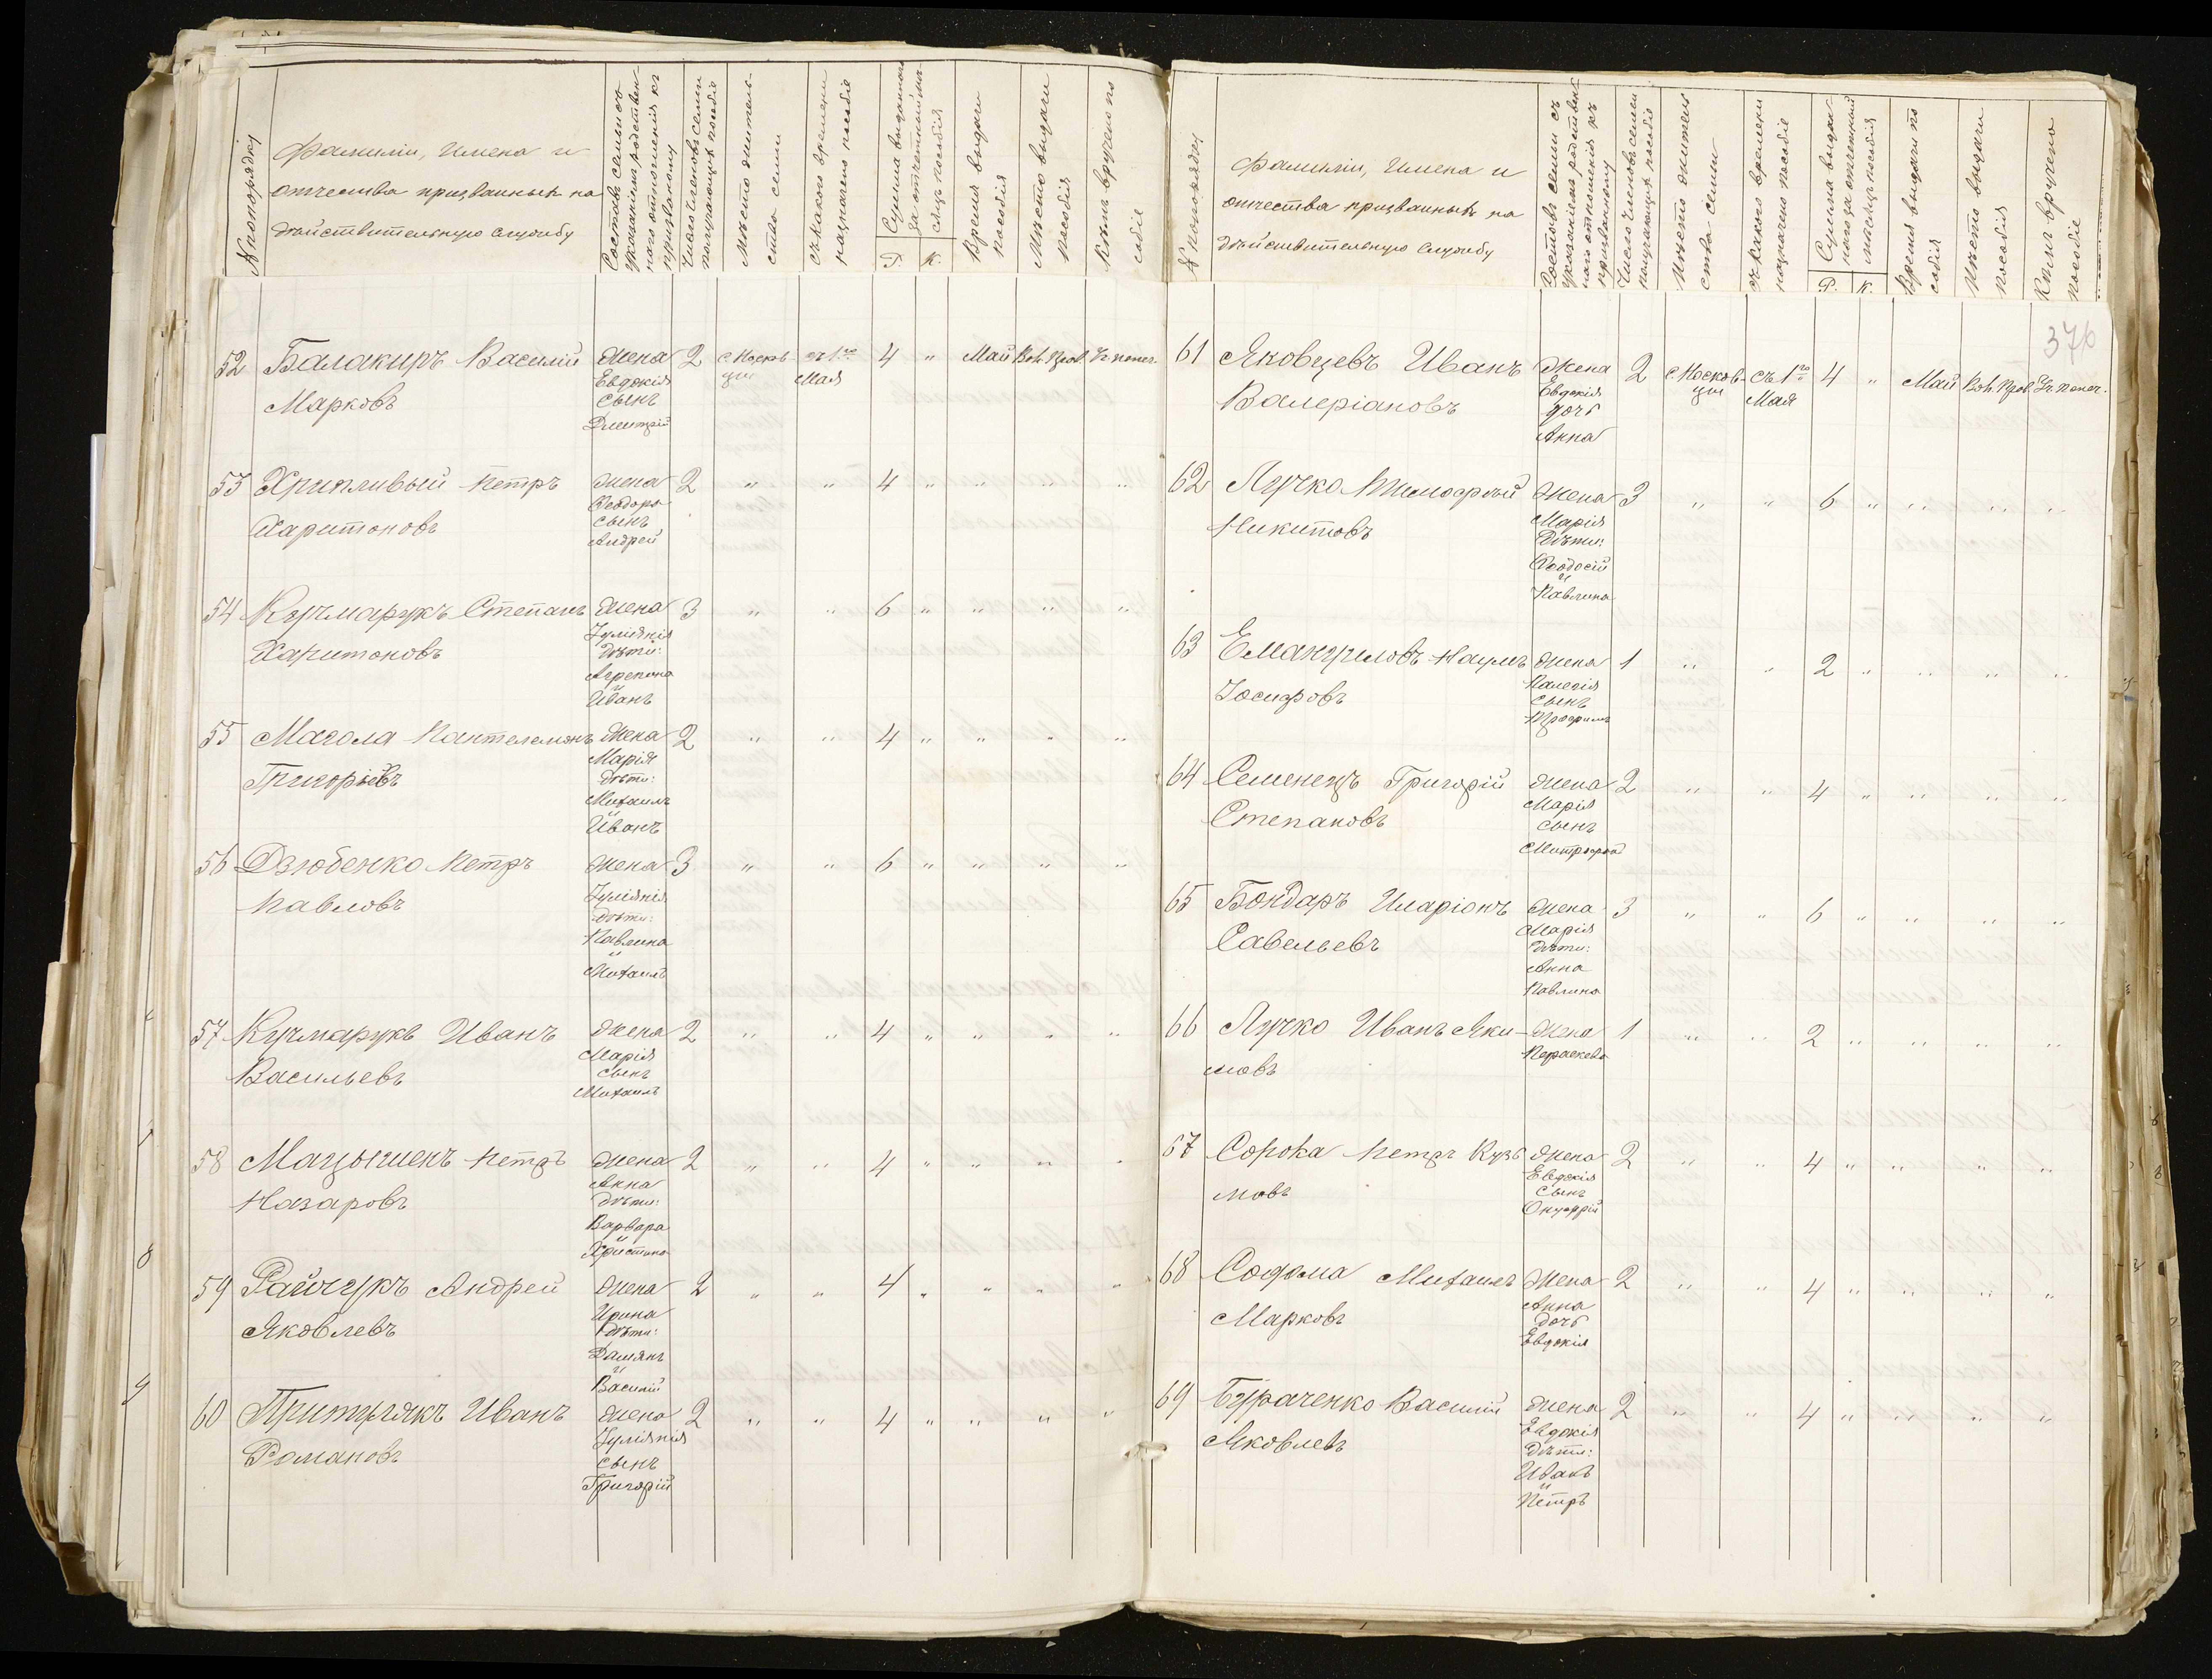 № по порядку
Фамиліи, Имена и
отчества призванныхъ на
дѣйствительную службу
Составъ семьи съ
указаніемъ родствен-
наго отношенія къ
призванному
Число членовъ семьи
получающихъ пособіе
Мѣсто житель-
ства семьи
Съ какого времени
назначено пособіе
Сумма выданная
за отчетный мѣ-
сяцъ пособія
Р. К.
Время выдачи
пособія
Мѣсто выдачи
пособія
Кѣмъ вручено по
собіе
52 Балакиръ Василій Жена 2 с. Москов- съ 1го 4 " Май Вол. Прав. Гл. попеч.
ци Мая
Евдокія
Марковъ сынъ
Дмитрій
53 Хрипливый Петръ Жена 2 " " 4 " " " "
Ѳеодора
Харитоновъ сынъ
Андрей
54 Кучмарукъ Степанъ Жена 3 " " 6 " " " "
Іуліянія
Харитоновъ дѣти:
Агрепина
и
Иванъ
55 Магола Пантелемонъ Жена 2 " " 4 " " " "
Марія
Григорьевъ дѣти:
Михаилъ
и
Иванъ
56 Дзюбенко Петръ Жена 3 " " 6 " " " "
Павловъ Іуліянія
дѣти:
Павлина
и
Михаилъ
57 Кучмарукъ Иванъ Жена 2 " " 4 " " " "
Марія
Васильевъ сынъ
Михаилъ
58 Мацышенъ Петръ Жена 2 " " 4 " " " "
Анна
Назаровъ дѣти:
Варвара
и
Христина
59 Райчукъ Андрей Жена 2 " " 4 " " " "
Ирина
Яковлевъ дѣти:
Даміянъ
и
Василій
60 Притулякъ Иванъ Жена 2 " " 4 " " " "
Іуліянія
Романовъ сынъ
Григорій
№ по порядку
Фамиліи, Имена и
отчества призванныхъ на
дѣйствительную службу
Составъ семьи съ
указаніемъ родствен-
наго отношенія къ
призванному
Число членовъ семьи
получающихъ пособіе
Мѣсто житель
ства семьи
съ какого времени
назначено пособіе
Сумма выдан-
ная за отчетный
мѣсяцъ пособія
Р. К.
Время выдачи по
собія
Мѣсто выдачи
пособія
Кѣмъ вручено
пособіе
376
61 Яковцевъ Иванъ Жена 2 с. Москов- съ 1го 4 " Май Вол. Прав. Гл. попеч.
ци Мая
Евдокія
Валеріановъ дочь
Анна
62 Лучко Тимофѣй Жена 3 " " 6 " " " "
Марія
Никитовъ Дѣти:
Ѳеодосій
и
Павлина
63 Емануиловъ Наумъ Жена 1 " " 2 " " " "
Іосифовъ сынъ
Трофимъ
64 Семенецъ Григорій Жена 2 " " 4 " " " "
Марія
Степановъ сынъ
Митрофанъ
65 Бондаръ Иларіонъ Жена 3 " " 6 " " " "
Марія
Савельевъ дѣти:
Анна
Павлина
66 Лучко Иванъ Яки- Жена 1 " " 2 " " " "
мовъ Пераскева
67 Сорока Петръ Кузь Жена 2 " " 4 " " " "
Евдокія
мовъ сынъ
Онуфрій
68 Содома Михаилъ Жена 2 " " 4 " " " "
Анна
Марковъ дочь
Евдокія
69 Бураченко Василій Жена 2 " " 4 " " " "
Евдокія
Яковлевъ дѣти:
Иванъ
и
Петръ